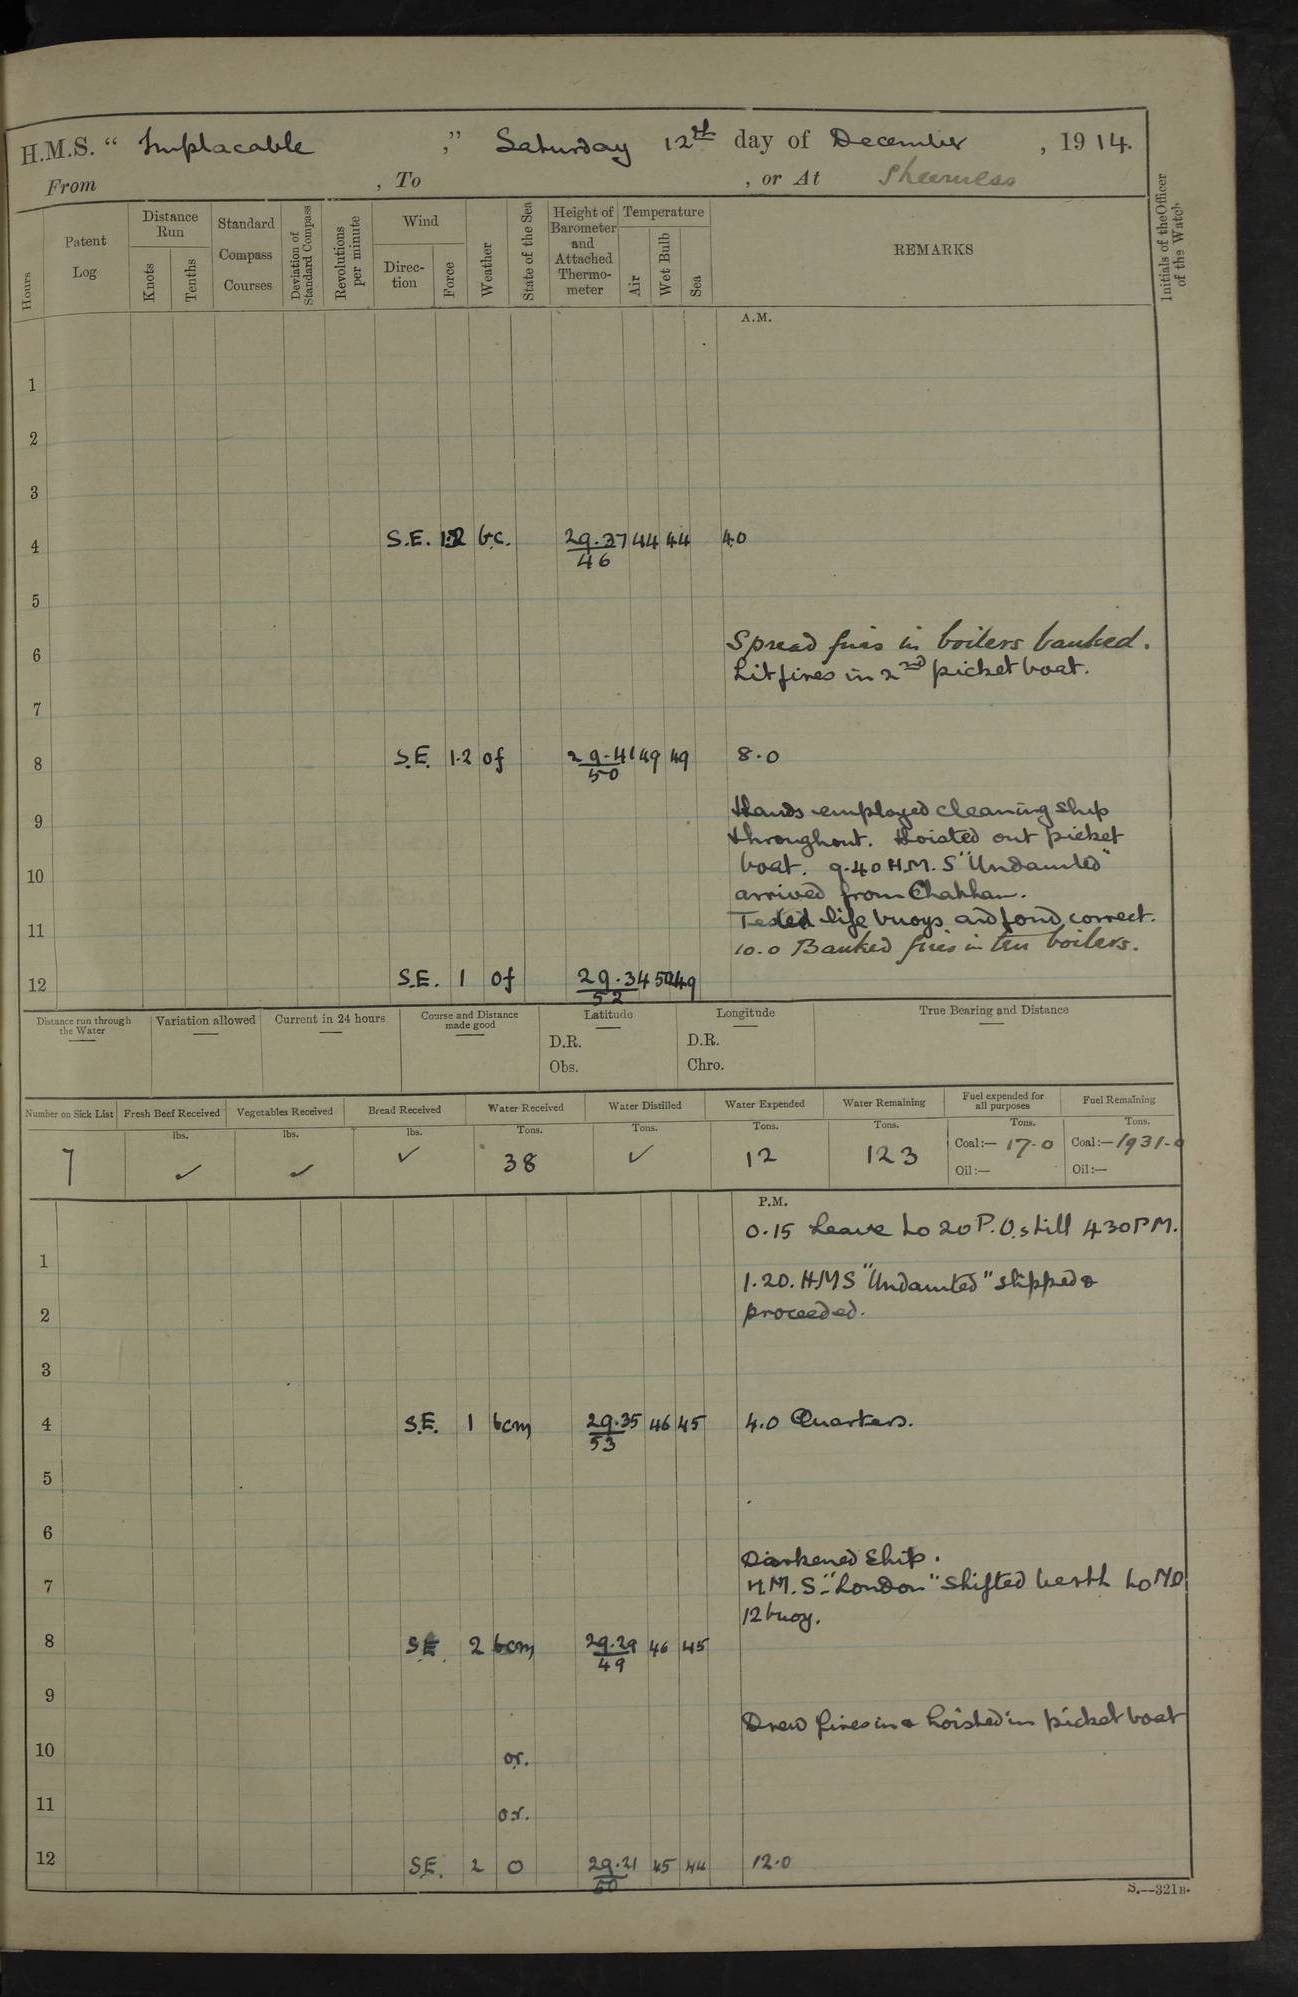 H.M.S. “ Implacable ,” Saturday 12th day of December , 1914.
From , To , or At Sheerness
Hours
Patent Log
Distance Run
Knots
Tenths
Standard Compass Courses
Deviation of Standard Compass
Revolutions per minute
Wind
Direc-tion
Force
Weather
State of the Sea
Height of Barometer and Attached Thermo-meter
Temperature
Air
Wet Bulb
Sea
REMARKS
Initials of the Officer of the Watch
A.M.
1
2
3
4 S.E. 1.2 b.c. 29.37 44 44 4.0
46
5
Spread fires in boilers banked.
6
Lit fires in 2nd picket boat.
7
8 S.E. 1.2 of 29.41 49 49 8.0
50
Hands employed cleaning ship
9
throughout. Hoisted out picket
boat. 9.40 H.M.S "Undaunted"
10
arrived from Chatham.
Tested life buoys and fond correct.
11
10.0 Banked fires in ten boilers.
12 S.E. 1 of 29.34 50 49
52
Distance run through the Water
Variation allowed
Current in 24 hours
Course and Distance made good
Latitude
D.R.
Obs.
Longitude
D.R.
Chro.
True Bearing and Distance
Number on Sick List
Fresh Beef Received
Vegetables Received
Bread Received
Water Received
Water Distilled
Water Expended
Water Remaining
Fuel expended for all purposes
Fuel Remaining
lbs. lbs. lbs. Tons. Tons. Tons. Tons. Tons. Tons.
7 ✓ ✓ ✓ 38 ✓ 12 123 Coal:— 17-0 Coal:— 1931-0
Oil:— Oil:—
P.M.
0.15 Leave to 20 P.O.s till 4 30 PM.
1
1.20. HMS "Undaunted" slipped &
2 proceeded.
3
4 S.E. 1 bcm 29.35 46 45 4.0 Quarters.
53
5
6
Darkened Ship.
7 H.M.S. "London" shifted berth to No
12 buoy.
8 SE. 2 bcm 29.29 46 45
49
9
Drew fires in & hoisted in picket boat
10 or.
11 or.
12 S.E. 2 o 29.21 45 44 12.0
50
S.—321B.